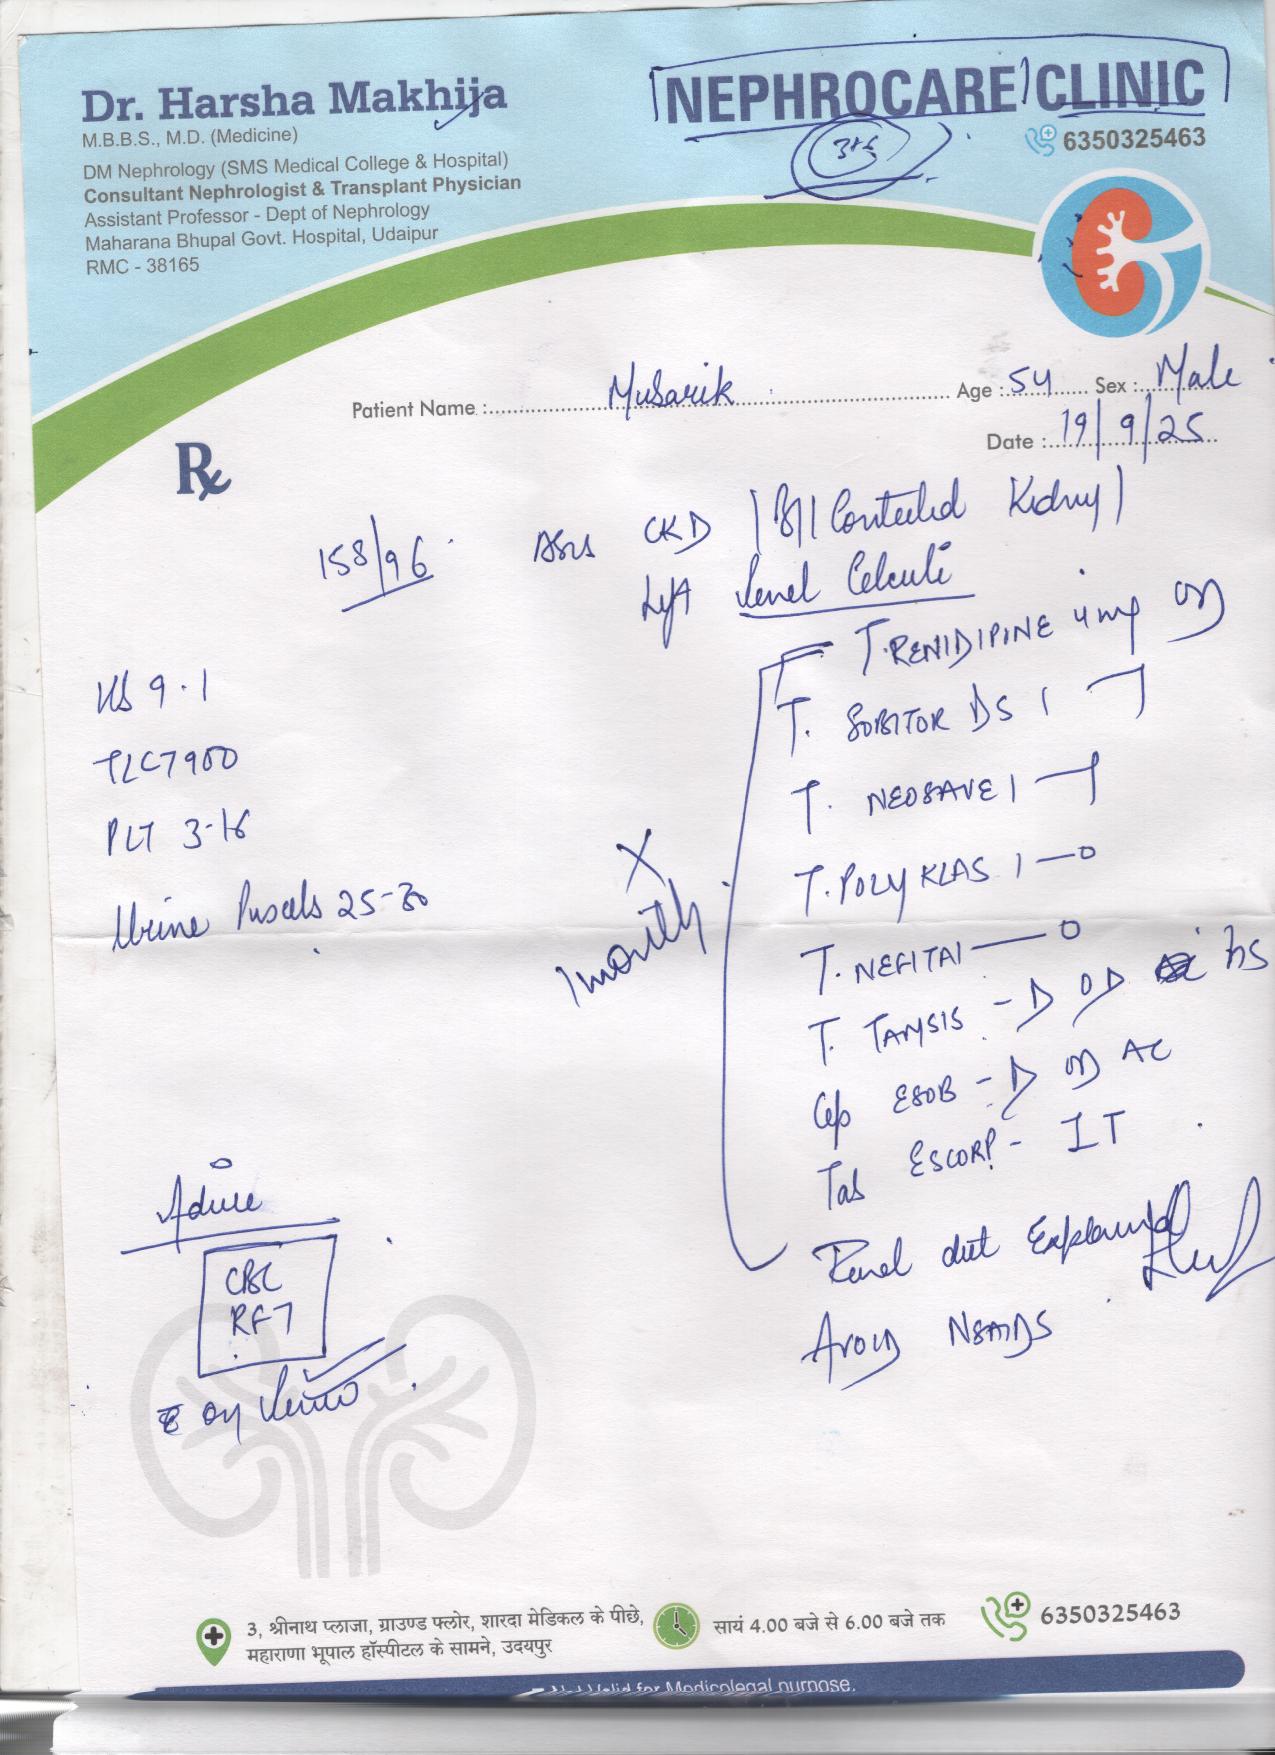 Dr. Harsha Makhija
M.B.B.S., M.D. (Medicine)
DM Nephrology (SMS Medical College & Hospital)
Consultant Nephrologist & Transplant Physician
Assistant Professor - Dept of Nephrology
Maharana Bhupal Govt. Hospital, Udaipur
RMC - 38165
NEPHROCARE CLINIC
6350325463
Patient Name : Musarik Age : 54 Sex : Male
Date : 19/9/25
Rx
158/96
CKD Kidney
T. RENIDIPINE 4mg OD
T. SOBITOR DS 1
T. NEOSAVE 1
T. POLYKLAS 1 — 0
T. — 0
T. - OD hs
Cap ESOB - OD AC
Tab ESCORP -
Renal diet Explained
Avoid NSAIDS
9.1
TLC 7900
PLT 3.16
Urine Puscells 25-30
X
1 month
Advice
CBC
RFT
3, श्रीनाथ प्लाजा, ग्राउण्ड फ्लोर, शारदा मेडिकल के पीछे,
महाराणा भूपाल हॉस्पीटल के सामने, उदयपुर
सायं 4.00 बजे से 6.00 बजे तक
6350325463
Not Valid for Medicolegal purpose.